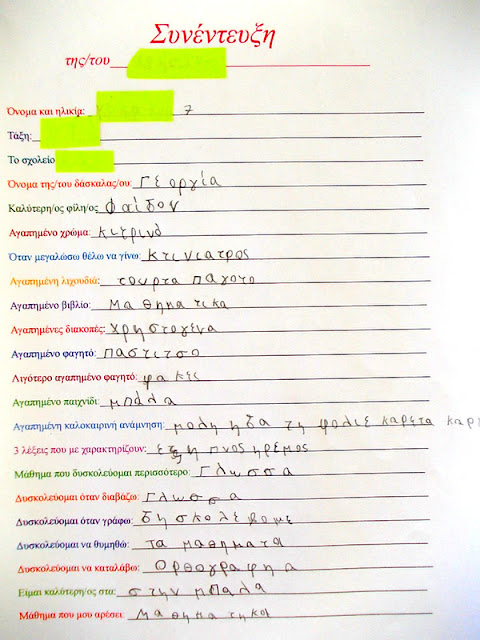 Συνέντευξη
της/του
Όνομα και ηλικία: 7
Τάξη:
Το σχολείο
Όνομα της/του δάσκαλας/ου: Γεοργία
Καλύτερη/ος φίλη/ος Φαίδον
Αγαπημένο χρώμα: κιτρινο
Όταν μεγαλώσω θέλω να γίνω: κτινιατρος
Αγαπημένη λιχουδιά: τουρτα παγοτο
Αγαπημένο βιβλίο: Μαθηματικα
Αγαπημένες διακοπές: χρηστογενα
Αγαπημένο φαγητό: παστιτσο
Λιγότερο αγαπημένο φαγητό: φακες
Αγαπημένο παιχνίδι: μπαλα
Αγαπημένη καλοκαιρινή ανάμνηση: μολη ηδα τη φολιε καρετα καρε
3 λέξεις που με χαρακτηρίζουν: ηρεμος
Μάθημα που δυσκολεύομαι περισσότερο: Γλωσσα
Δυσκολεύομαι όταν διαβάζω: Γλωσσα
Δυσκολεύομαι όταν γράφω: δησκολεβομε
Δυσκολεύομαι να θυμηθώ: Τα μαθηματα
Δυσκολεύομαι να καταλάβω: Ορθογραφηα
Είμαι καλύτερη/ος στα: στην μπαλα
Μάθημα που μου αρέσει: Μαθηματηκα